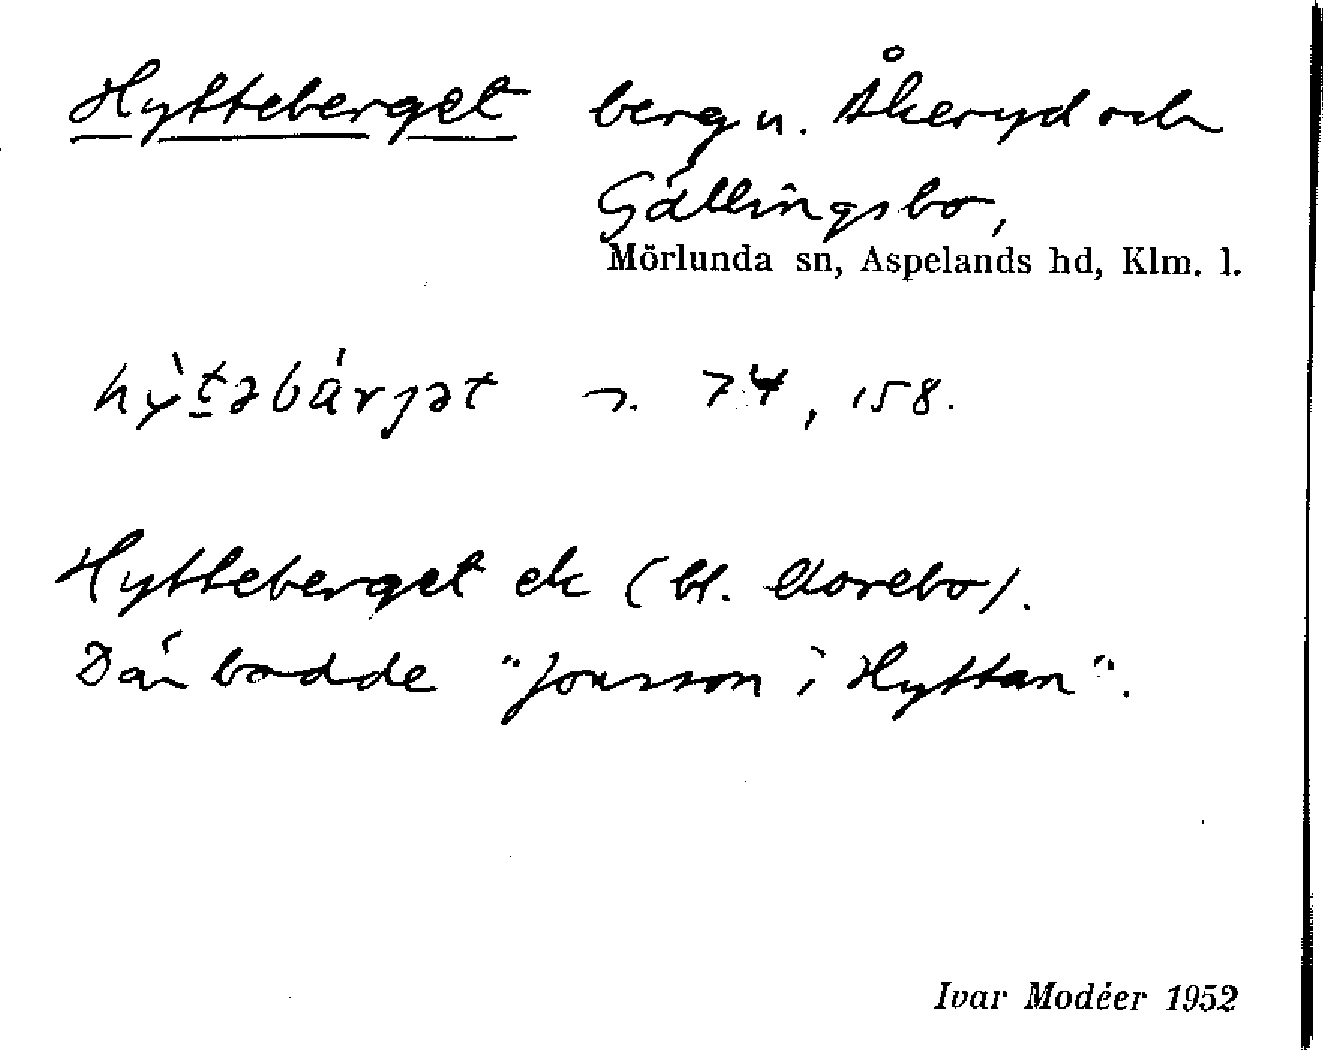 Hytteberget berg u. Åkeryd och
Gällingsbo,
Mörlunda sn, Aspelands hd, Klm. l.
hỳtəbárjət n. 74, 158.
Hytteberget ek (bl.
Där bodde "Jonsson i Hyttan".
Ivar Modéer 1952